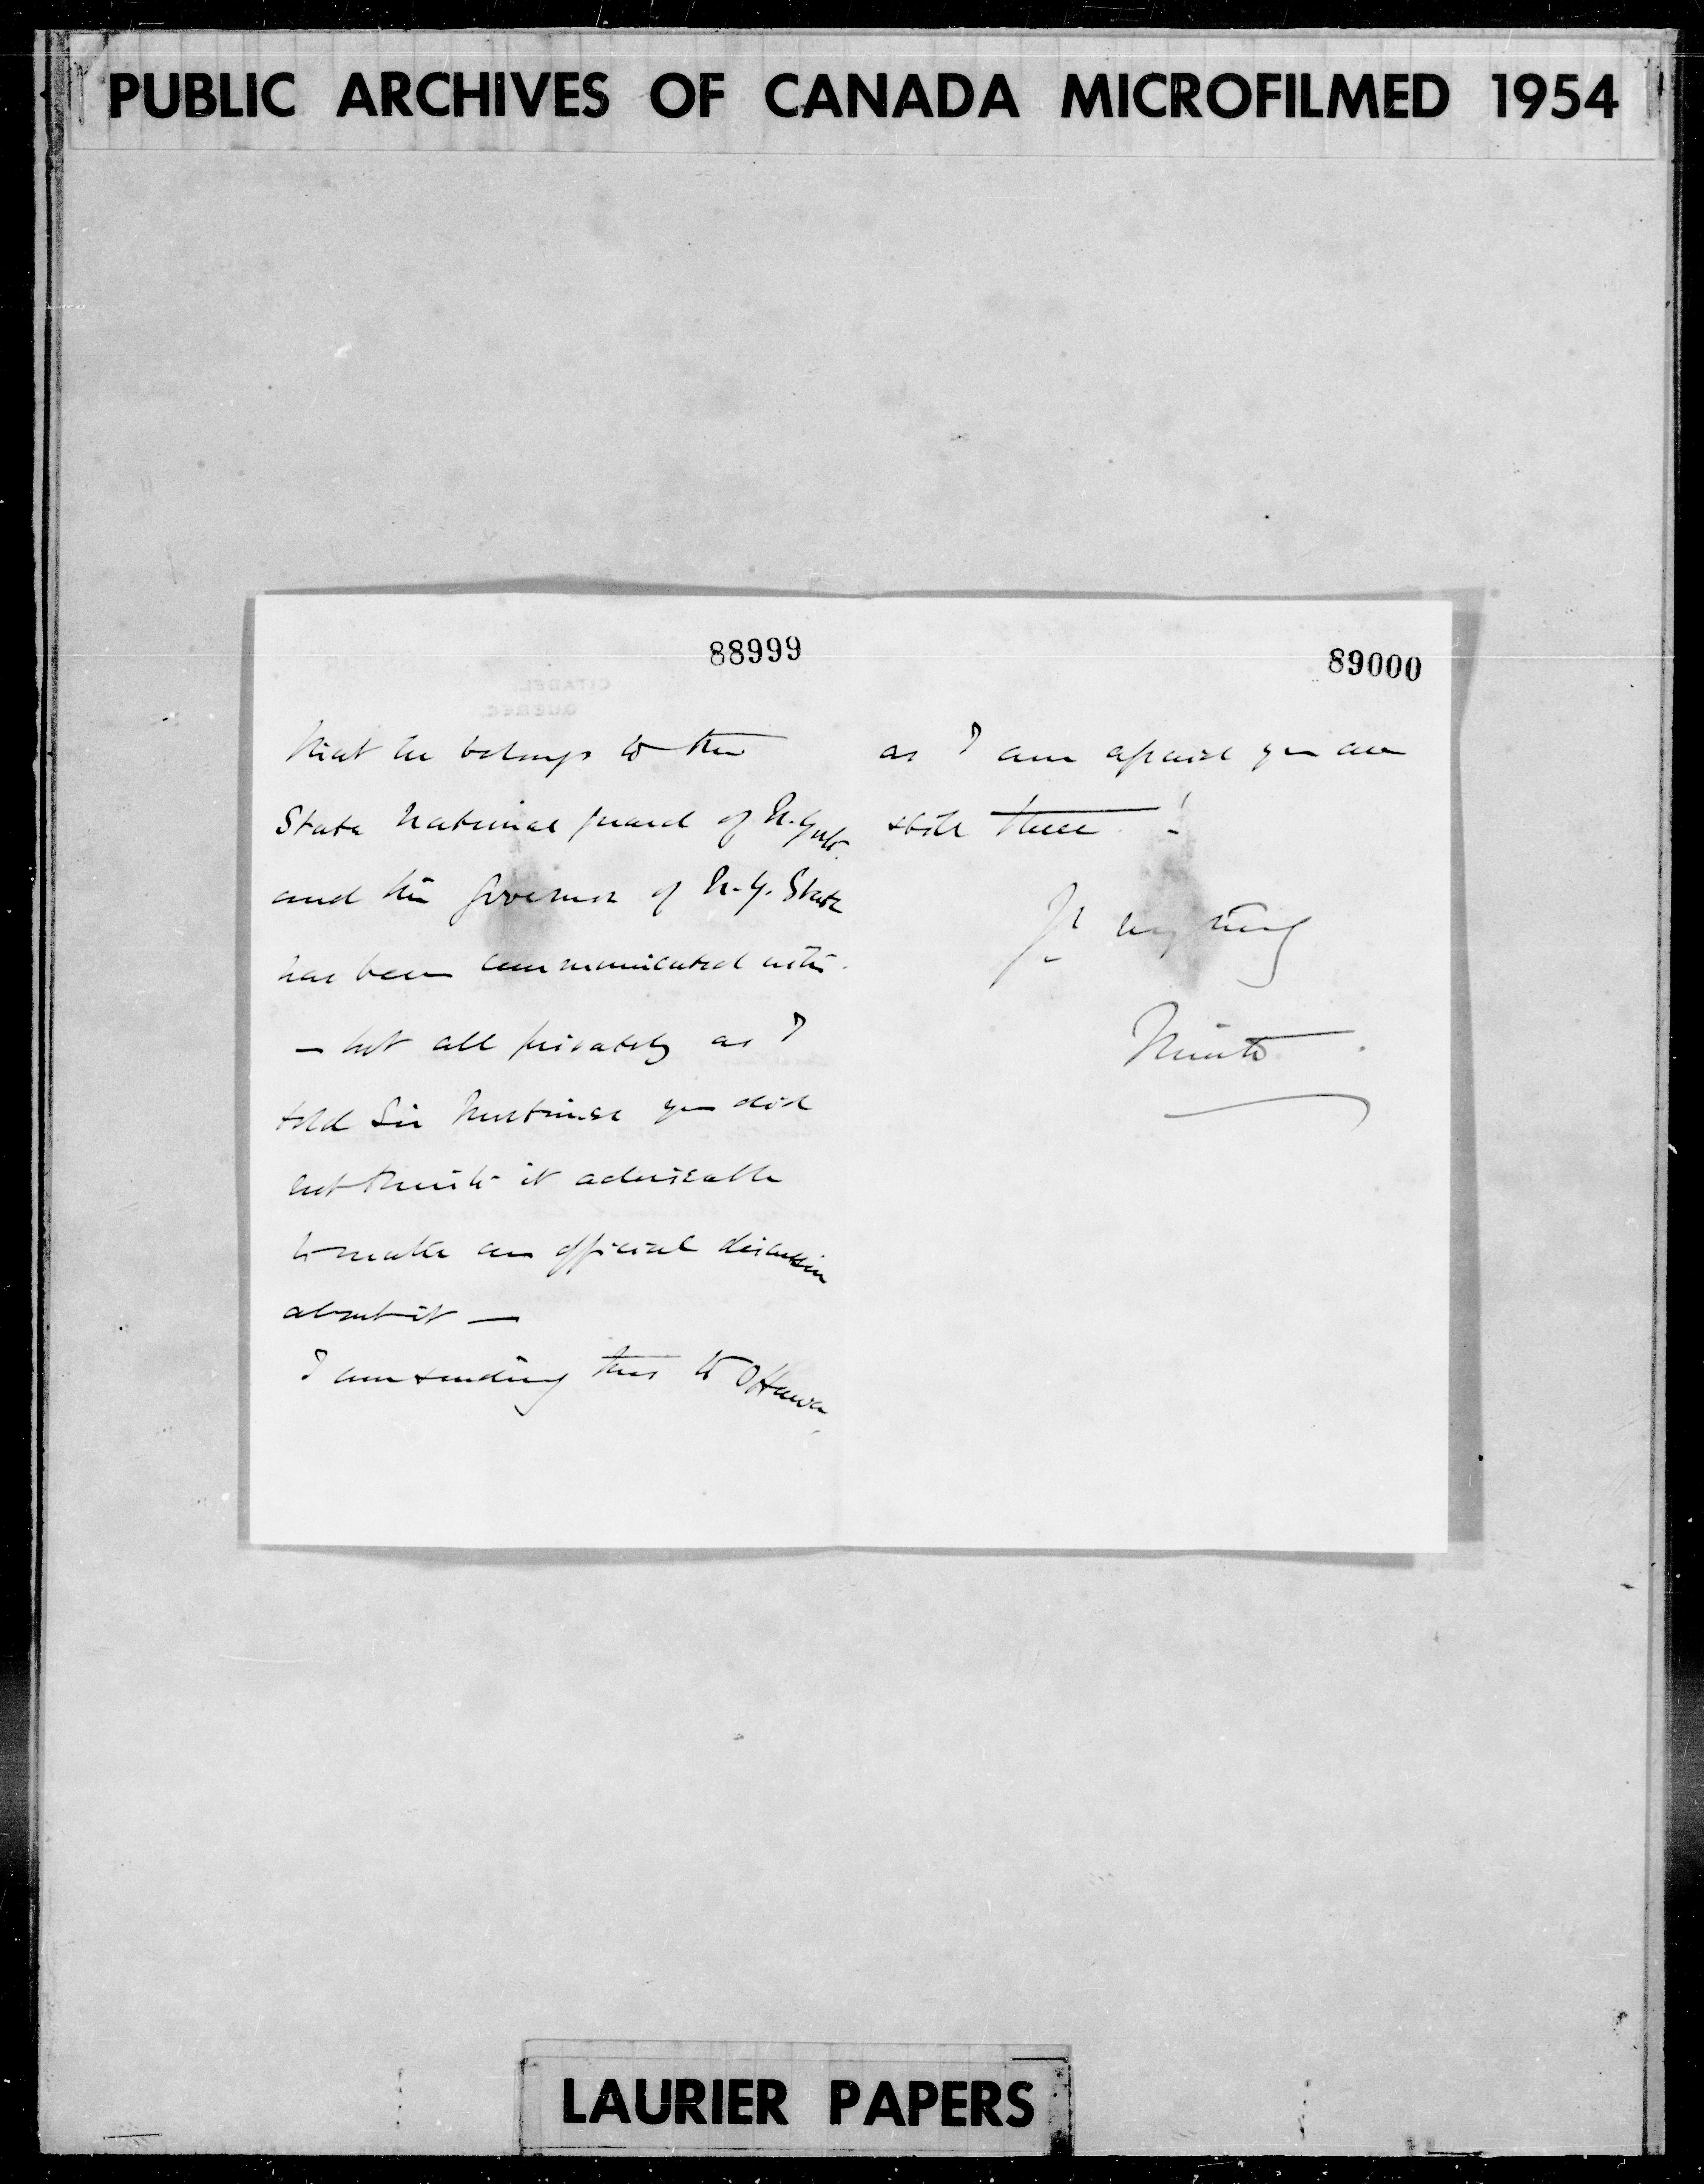 PUBLIC ARCHIVES OF CANADA MICROFILMED 1954
88999
that he belongs to the
State National guard of N. York
and the Governor of N.Y. State
has been communicated with.
— but all privately as I
told Sir Mortimer you did
not think it adviseable
to make an official discussion
about it —
I am sending this to Ottawa
89000
as I am afraid you are
still there !
Yrs very truly
Minto
CITADEL.
QUEBEC.
LAURIER PAPERS